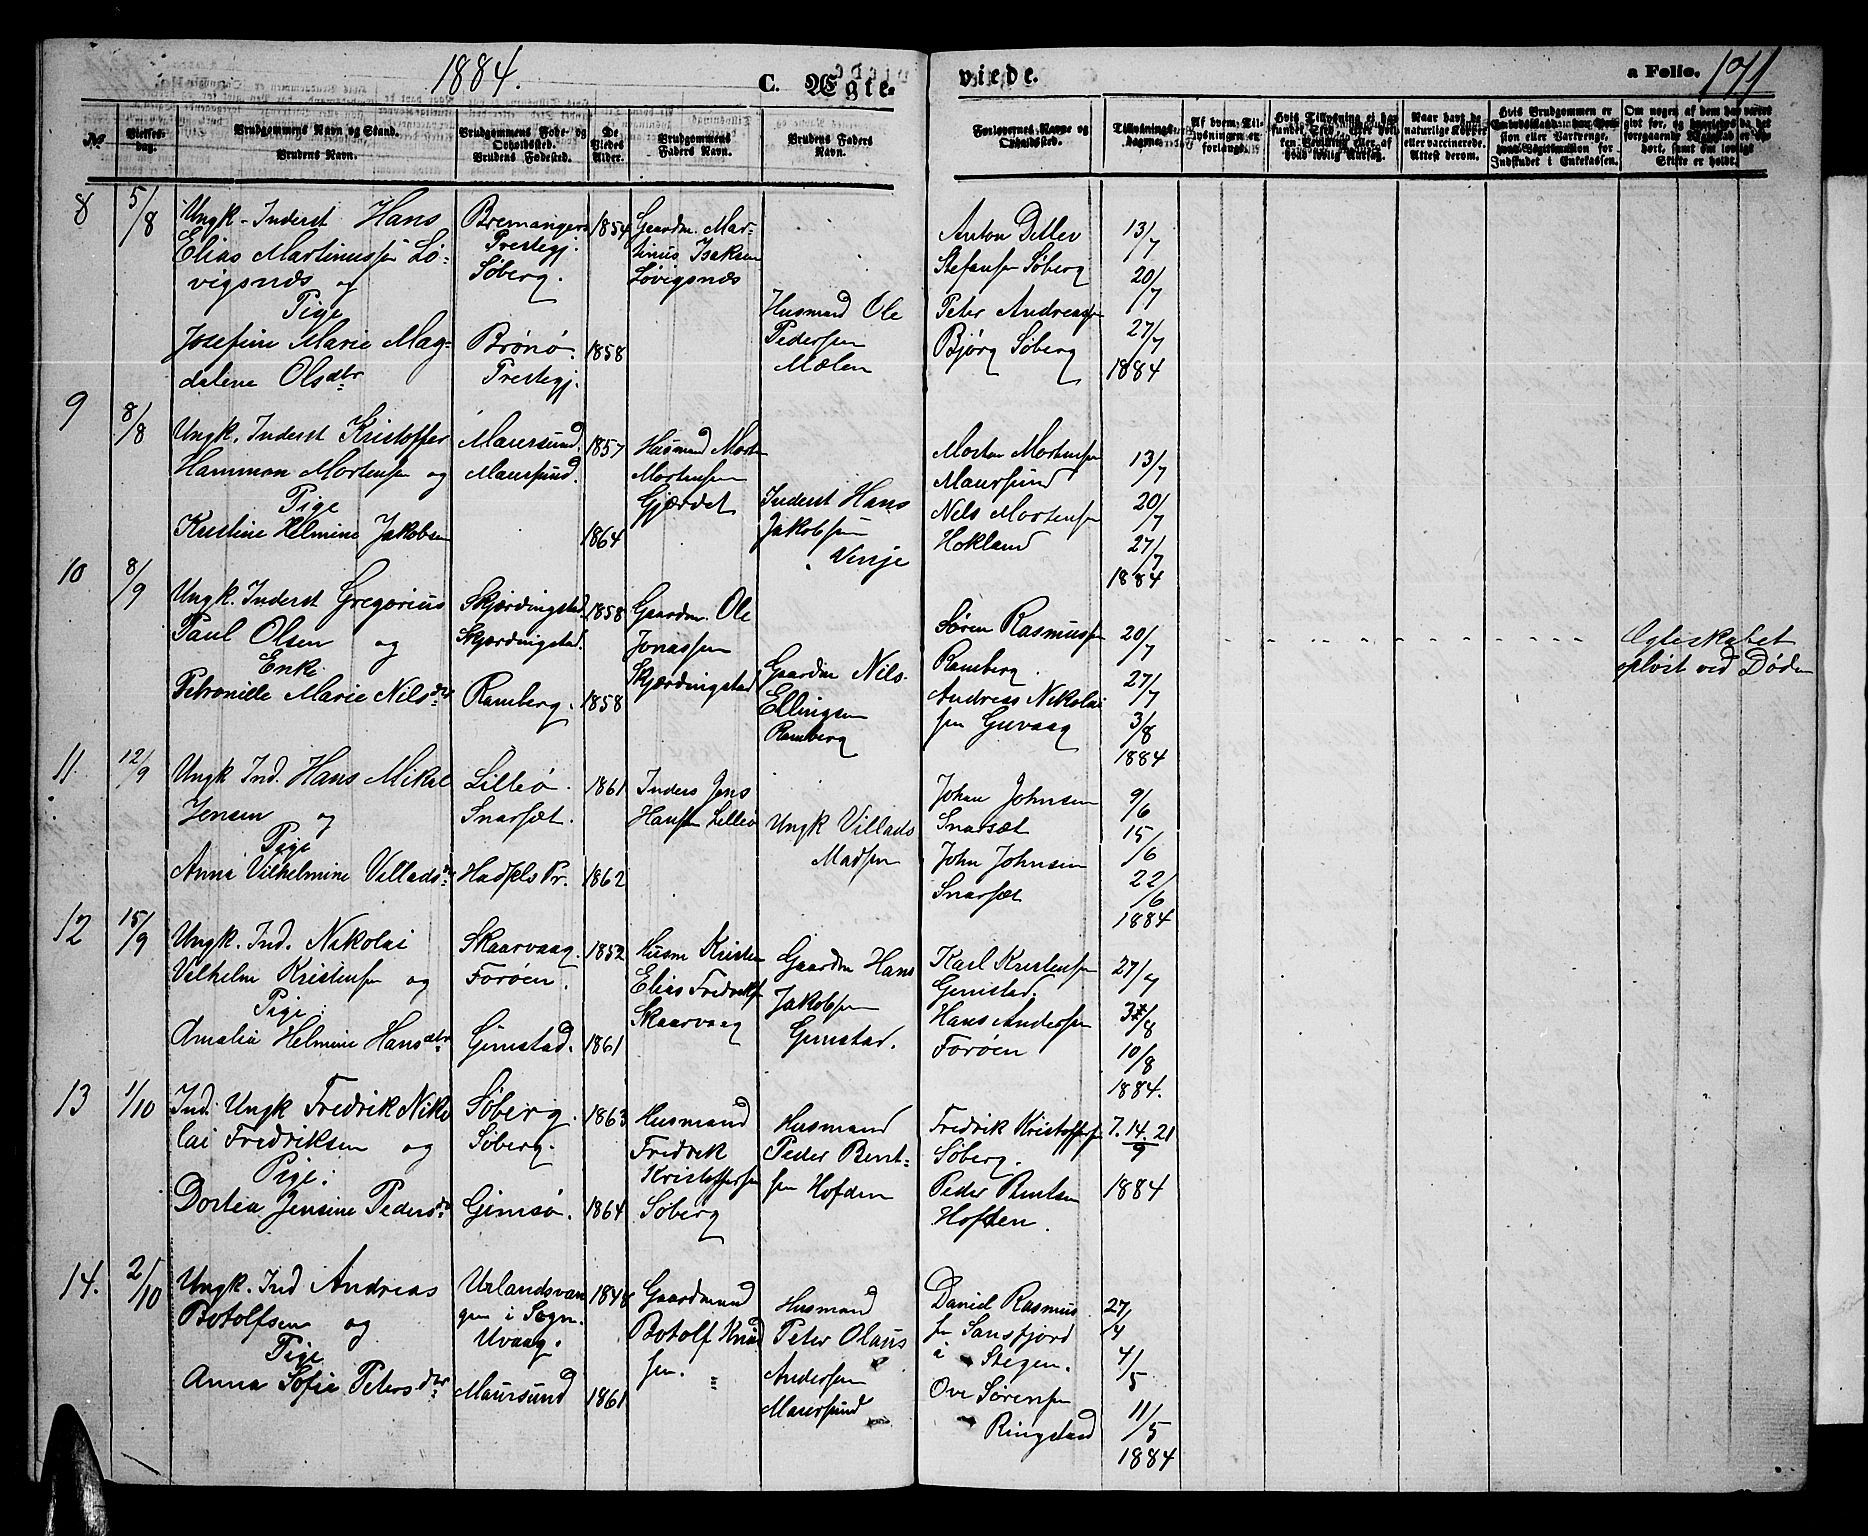 1884.
C. Ægte-
viede.
a Folio. 171
No
Vielses-dag.
Brudgommens Navn og Stand.
Brudens Navn.
Brudgommens Føde- og Opholdssted.
Brudens Fødested.
De Viedes Alder.
Brudgommens Faders Navn.
Brudens Faders Navn.
Forlovernes Navne og Opholdssted.
Tillysnings-dagene.
Af hvem Tillysningen er forlangt.
Naar havt de naturlige Kopper eller vaccinerede. Attest derom.
8 5/8
Ungk. Inderst Hans
Elias Martinussen Lø-
vigsnæs og
Pige
Josefine Marie Mag-
dalena Olsdtr
Bremangers
Prestegj.
Søberg.
Brønø
Prestegj.
1854
1858
Gaardm. Mar-
tinus Isaksen
Løvigsnæs
Husmand Ole
Pedersen
Mælen
Anton Detlev
Stefansen Søberg
Peter Andreasen
Bjørg Søberg
13/7
20/7
27/7
1884
9 8/8
Ungk. Inderst Kristoffer
Hammon Mortensen og
Pige
Kristine Helmine Jakobsen
Maursund.
Maursund.
1857
1864
Husmand Morten
Mortensen
Gjærdet
Inderst Hans
Jakobsen
Vinje
Morten Mortensen
Maursund
Nils Mortensen
Hokland
13/7
20/7
27/7
1884
10 8/9
Ungk. Inderst Gregorius
Paul Olsen og
Enke
Petronille Marie Nilsdtr
Skjærdingstad.
Skjærdingstad.
Ramberg.
1858
1858
Gaardm. Ole
Jonassen
Skjærdingstad
Gaardm Nils
Ellingsen
Ramberg
Søren Rasmussen
Ramberg.
Andreas Nikolai
sen Guvaag
20/7
27/7
3/8
1884
Ægteskabet
opløst ved Døden
11. 12/9
Ungk Ind. Hans Mikal
Jensen og
Pige
Anna Vilhelmine Villadsdtr
Lilleø.
Snarsæt.
Hadsels Pr.
1861
1862
Inders Jens
Hansen Lilleø
Ungk Villads
Madsen
Johan Johnsen
Snarsæt
John Johnsen
Snarsæt
9/6
15/6
22/6
1884
12 15/9
Ungk. Ind. Nikolai
Vilhelm Kristensen og
Pige
Amalia Helmine Hansdtr
Skaarvaag.
Forøen.
Gimstad.
1852
1861
Husm Kristen
Elias Fredriksen
Skaarvaag
Gaardm Hans
Jakobsen
Gimstad.
Karl Kristensen
Gimstad.
Hans Andersen
Forøen
27/7
3/8
10/8
1884.
13 1/10
Ind. Ungk Fredrik Niko
lai Fredriksen og
Pige:
Dortea Jensine Pedersdtr
Søberg.
Søberg.
Gimsø.
1863
1864
Husmand
Fredrik
Kristoffersen
Søberg
Husmand
Peder Bent-
sen Hofden
Fredrik Kristoffersen
Søberg.
Peder Bentsen
Hofden.
7. 14. 21
9
1884
14. 2/10
Ungk. Ind Andreas
Botolfsen og
Pige
Anna Sofie Petersdtr
Urlandsvan
gen i Sogn.
Uvaag.
Maursund
1848
1861
Gaardmand
Botolf Knud
sen.
Husmand
Peter Olaus
Andersen
Maursund
Daniel Rasmus
sen Sansfjord
i Stegen.
Ove Sørensen
Ringstad
27/4
4/5
11/5
1884